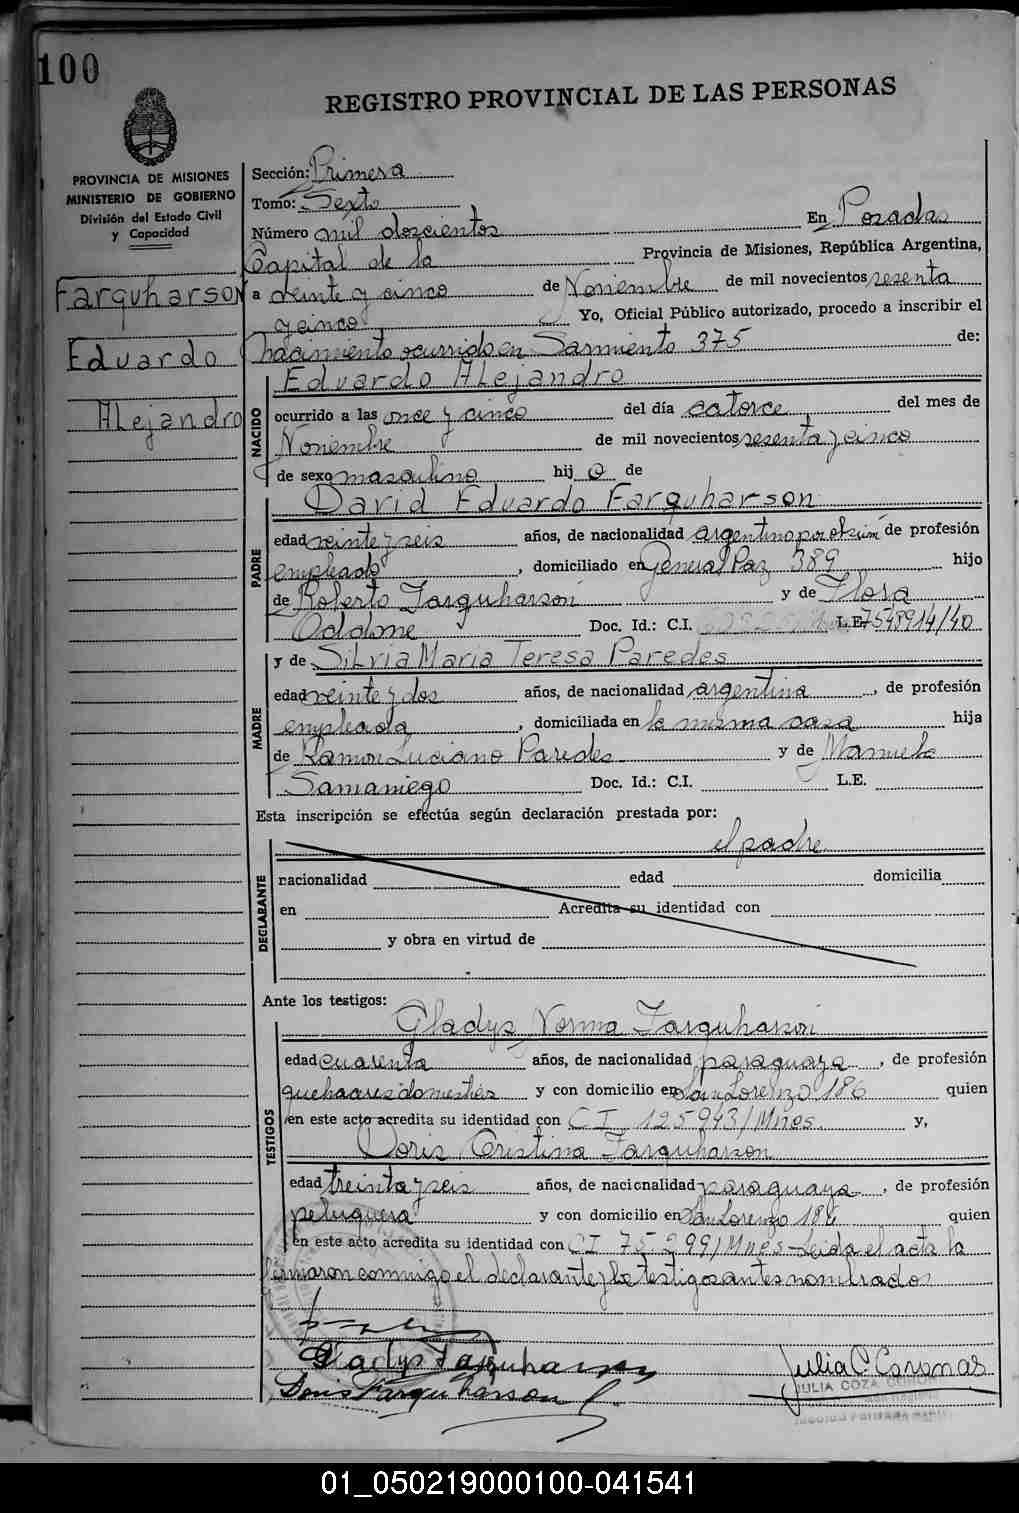 100
REGISTRO PROVINCIAL DE LAS PERSONAS
PROVINCIA DE MISIONES
MINISTERIO DE GOBIERNO
División del Estado Civil
y Capacidad
Farquharson
Eduardo
Alejandro
Sección: Primera
Tomo: Sexto
Número mil doscientos En Posadas
Capital de la Provincia de Misiones, República Argentina,
a veinte y cinco de Noviembre de mil novecientos sesenta
y cinco Yo, Oficial Público autorizado, procedo a inscribir el
nacimiento ocurrido en Sarmiento 375 de:
NACIDO
Eduardo Alejandro
ocurrido a las once y cinco del día catorce del mes de
Noviembre de mil novecientos sesenta y cinco
de sexo masculino hij o de
PADRE
David Eduardo Farquharson
edad veinte y seis años, de nacionalidad argentino por de profesión
empleado, domiciliado en General Paz 389 hijo
de Roberto Farquharson y de Flora
Oddone Doc. Id.: C.I. L.E. 7548914/40
MADRE
y de Silvia Maria Teresa Paredes
edad veinte y dos años, de nacionalidad argentina, de profesión
empleada, domiciliada en la misma casa hija
de Ramon Luciano Paredes y de Manuela
Samaniego Doc. Id.: C.I. L.E.
Esta inscripción se efectúa según declaración prestada por:
DECLARANTE
el padre
nacionalidad edad domicilia
en Acredita su identidad con
y obra en virtud de
Ante los testigos:
TESTIGOS
Gladys Norma Farquharson
edad cuarenta años, de nacionalidad paraguaya, de profesión
quehaceres domesticos y con domicilio en San Lorenzo 186 quien
en este acto acredita su identidad con CI 125943/Mnes. y,
Doris Cristina Farquharson
edad treinta y seis años, de nacionalidad paraguaya, de profesión
peluquera y con domicilio en San Lorenzo 186 quien
en este acto acredita su identidad con CI 75299/Mnes - Leida el acta la
firmaron conmigo el declarante y los testigos antes nombrados
Gladys Farquharson
Doris Farquharson
Julia C. Coronas
JULIA COZA
01_050219000100-041541